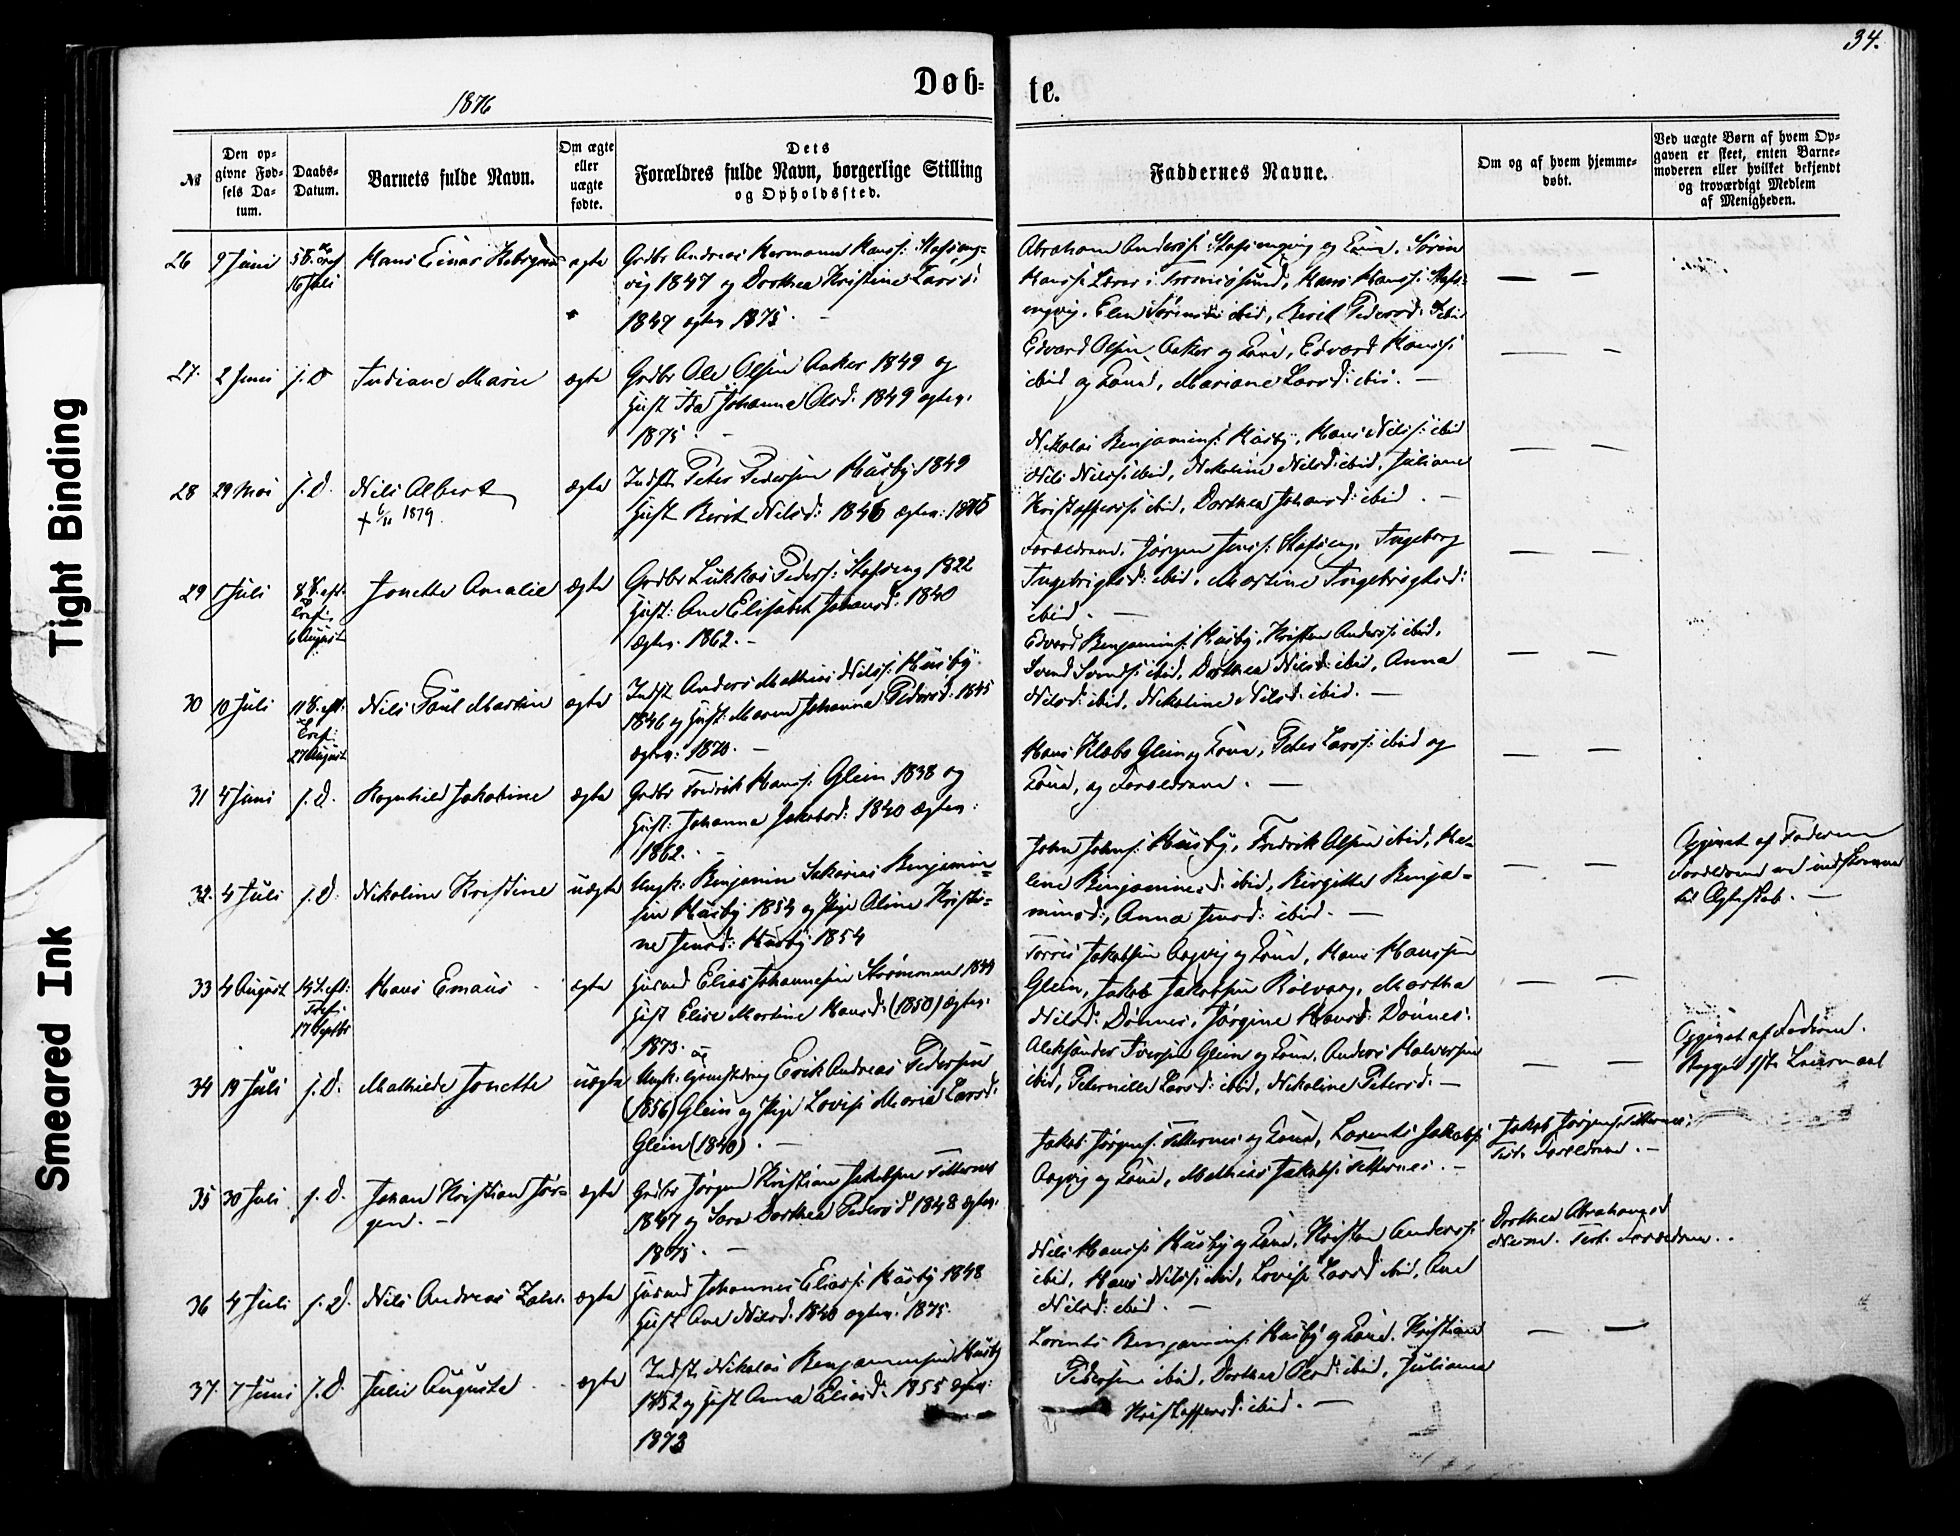 34.
Døb= te.
1876
№
Den op=
givne Fød=
sels Da=
tum.
Daabs=
Datum.
Barnets fulde Navn.
Om ægte
eller
uægte
fødte.
Dets
Forældres fulde Navn, borgerlige Stilling
og Opholdssted.
Faddernes Navne.
Om og af hvem hjemme=
døbt.
Ved uægte Børn af hvem Op=
gaven er skeet, enten Barne=
moderen eller hvilket bekjendt
og troværdigt Medlem
af Menigheden.
26
9 Juni
16 Juli
Hans Einar
ægte
Grdbr Andreas Hermann Hanss:
1847 og Dorthea Kristine Larsd:
1847 ægtev. 1875. —
Abraham Anderss:
Hanss: Lærer i Tromsøsund, Hans Hanss:
Elen ibid, Berit Pedersd:
— —
27.
2 Juni
s. D
Indiane Marie
ægte
Grdbr Ole Olsen Aaker 1849 og
Hust Ida Johanna Olsd. 1849 ægtev.
1875. —
Edvard Olsen, Aaker og Kone, Edvard Hanss:
ibid og Kone, Mariane Larsd: ibid. —
— —
28
29 Mai
s. D.
Nils Albert
1879.
ægte
Indst. Peter Pedersen Husby 1849
Hust Berit Nilsd: 1846 ægtev: 1875
Nikolai Benjamins: Husby, Hans Nilss: ibid
Nils Nilss: ibid, Nikoline Nilsd: ibid, Juliane
Kristoffersd: ibid, Dorthea Johansd: ibid. —
— —
29
1 Juli
8 S. eft.
Tref.
6 August
Jonette Amalie
ægte
Grdbr Lukkas Pederss: Stafseng 1822
Hust: Ane Elisabet Johansd: 1840
ægtev. 1862. —
Forældrene, Jørgen Jenss: Stafseng, Ingeborg
Ingebrigtsd: ibid, Martine Ingebrigtsd:
ibid. —
— —
30
10 Juli
11 S. eft:
Tref:
27 August
Nils Paul Martin
ægte
Indst Anders Mathias Nilss: Husby
1846 og Hust: Maren Johanna Pedersd: 1845
ægtev: 1870. —
Edvard Benjamins: Husby, Kristen Anderss: ibid.
Svend Svends: ibid, Dorthea Nilsd: ibid, Anna
Nilsd: ibid, Nikoline Nilsd: ibid. —
— —
31
4 Juni
s. D.
Ragnhild Jakobine
ægte
Grdbr Fredrik Hanss: Glein 1838 og
Hust: Johanna Jakobsd: 1840 ægtev:
1862. —
Hans Klæbo Glein og Kone, Peter Larss: ibid og
Kone, og Forældrene. —
— —
32.
4 Juli
s. D.
Nikoline Kristine
uægte
Ungk: Benjamin Sakarias Benjamin=
sen Husby 1854 og Pige Oline Kristi=
ne Jensd: Husby 1854
John Johns: Husby, Fredrik Olsen ibid, He=
lene Benjaminsd: ibid, Birgitte Benja=
minsd:, Anna Jensd: ibid. —
— —
Opgivet af Faderen
Forældrene ere indskrevne
til Ægteskab. —
33
4 August
14 S. eft:
Tref:
17 Septbr
Hans Emaus
ægte
Husmd Elias Johannesen
Hust Elise Martine Hansd: (1850) ægtev.
1873.
Torris Jakobsen Aagvig og Kone, Hans Hanssen
Glein, Jakob Jakobsen Rølvaag, Martha
Nilsd: Dønnes, Jørgine Hansd: Dønnes.
— —
34
19 Juli
s. D.
Mathilde Jonette
uægte
Ungk: Erik Andreas Pedersen
(1856) Glein og Pige Lovise Maria Larsd:
Glein (1840). —
Aleksander Iversen Glein og Kone, Anders Halvorsen
ibid, Peternille Larsd: ibid, Nikoline Petersd. —
— —
Opgivet af Faderen.
Begges 1ste Leiermaal
35
30 Juli
s. D.
Johan Kristian Jør=
gen. —
ægte
Grdbr Jørgen Kristian Jakobsen Titternes
1847 og Sara Dorthea Pedersd 1848 ægtev.
1875. —
Jakob Jørgens: Titternes og Kone, Lorents Jakobs:
Aagvig og Kone, Mathias Jakobs: Titternes. —
Jakob Jørgens: Titternes:
Test. Forældrene. —
36
4 Juli
s. D.
Nils Andreas
ægte
Husmd Johannes Eliass: Husby 1848
Hust Ane Nilsd. 1840 ægtev. 1875.
Nils Hanss: Husby og Kone, Kristen Anderss:
ibid, Hans Nilss: ibid, Lovise Larsd: ibid, Ane
Nilsd: ibid. —
Dorthea Abrahamsd
Test. Forældrene.
37.
7 Juni
s. D.
Julie Augusta
ægte
Indst: Nikolai Benjaminsen Husby
1852 og Hust Anna Eliasd: 1855 ægtev:
1873
Lorents Benjamins: Husby og Kone. Kristian
Pedersen ibid, Dorthea Olsd: ibid, Juliane
Kristoffersd: ibid. —
— —
Tight Binding
Smeared Ink